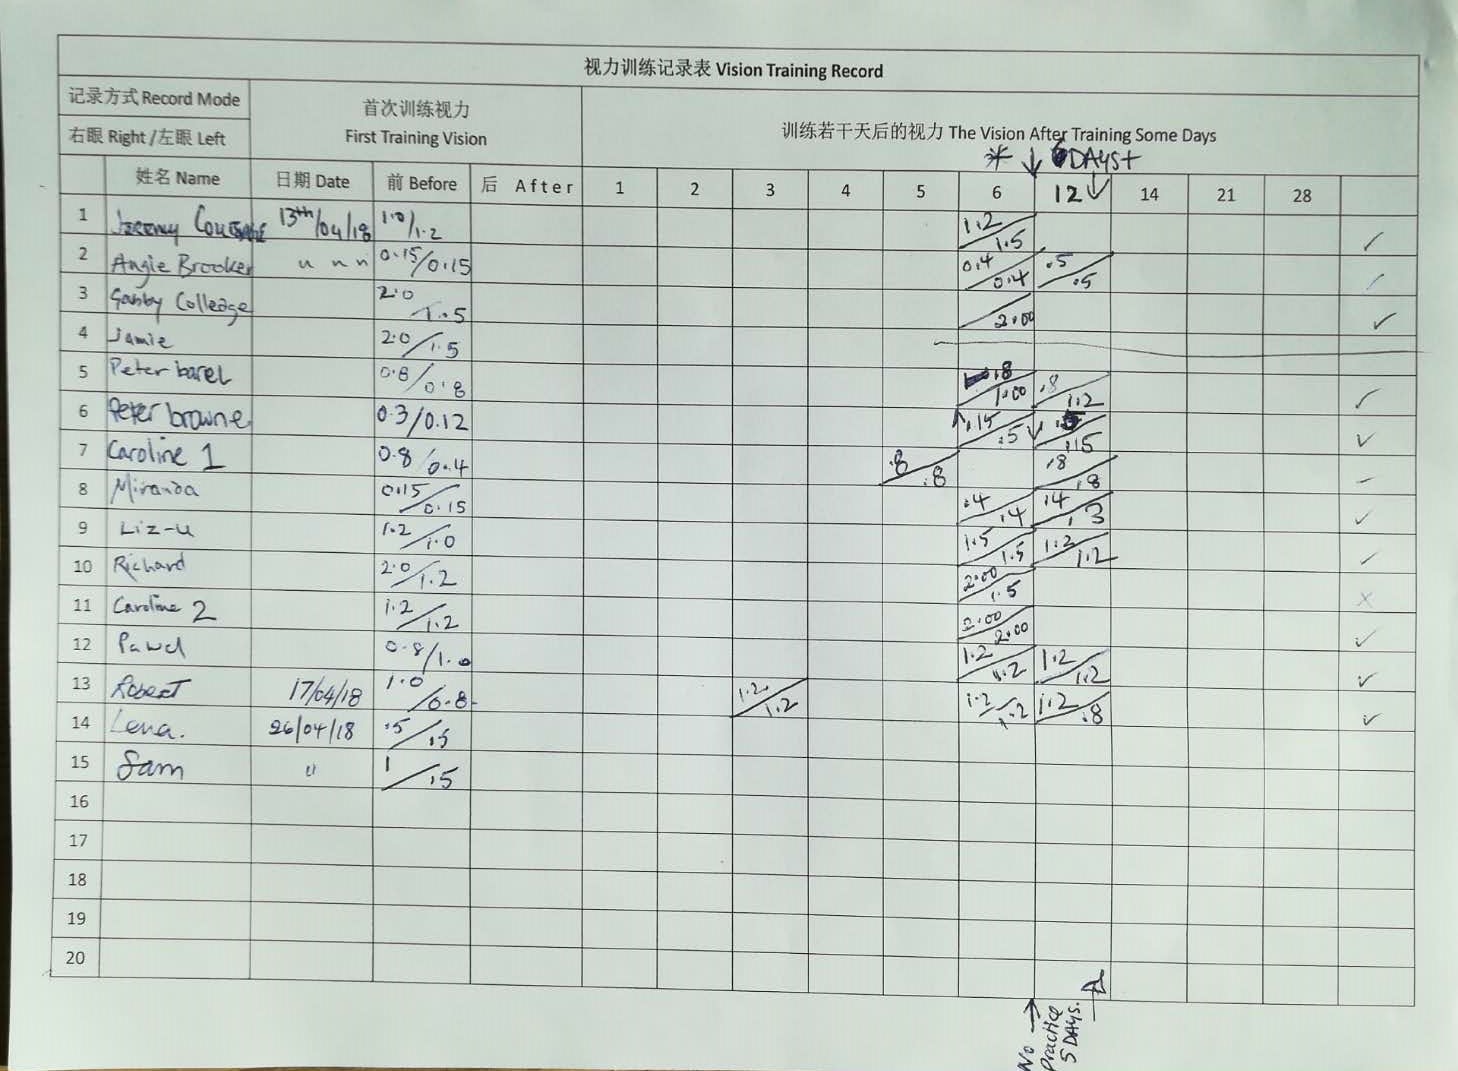 视力训练记录表 Vision Training Record
记录方式 Record Mode
右眼 Right /左眼 Left
首次训练视力
First Training Vision
训练若干天后的视力 The Vision After Training Some Days
* ↓ 6 DAYS+
姓名 Name 日期 Date 前 Before 后 After 1 2 3 4 5 6 12 ↓ 14 21 28
1 Jeremy 13th/04/18 1.0/1.2 1.2/1.5 ✓
2 Angie Brooker " " " 0.15/0.15 0.4/0.4 .5/.5 ✓
3 Gabby Colleage 2.0/1.5 /2.00 ✓
4 Jamie 2.0/1.5
5 Peter barel 0.8/0.8 .8/1.00 .8/1.2 ✓
6 Peter browne 0.3/0.12 .15/.5 /.15 ✓
7 Caroline 1 0.8/0.4 .8/.8 .8/.8
8 Miranda 0.15/0.15 .4/.4 .4/.3 ✓
9 Liz-u 1.2/1.0 1.5/1.5 1.2/1.2 ✓
10 Richard 2.0/1.2 2.00/1.5 x
11 Caroline 2 1.2/1.2 2.00/2.00 ✓
12 Pawel 0.8/1.0 1.2/1.2 1.2/1.2 ✓
13 Robert 17/04/18 1.0/0.8 1.2/1.2 1.2/1.2 1.2/.8 ✓
14 Lena. 26/04/18 .5/.5
15 Sam " 1/.5
16
17
18
19
20
No →
practice
5 DAYS.